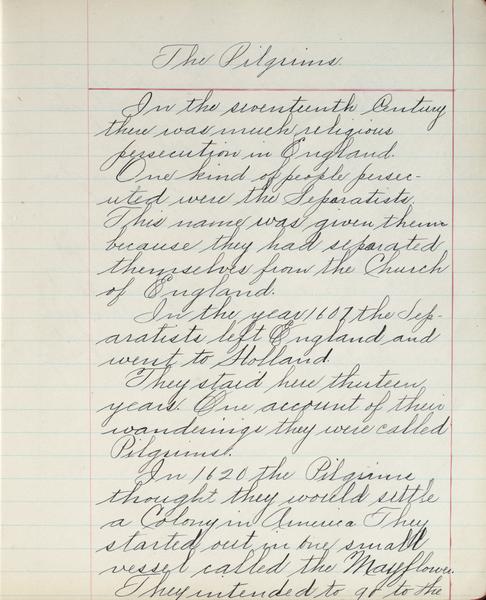 The Pilgrims.
In the seventeenth Century
there was much religious
persecution in England.
One kind of people persec-
uted were the Separatists.
This name was given them
because they had separated
themselves from the Church
of England.
In the year 1607 the Sep-
aratists left England and
went to Holland
They staid here thirteen
years. One account of their
wanderings they were called
Pilgrims.
In 1620 the Pilgrims
thought they would settle
a Colony in America They
started out in one small
vessel called the Mayflower.
They intended to go to the